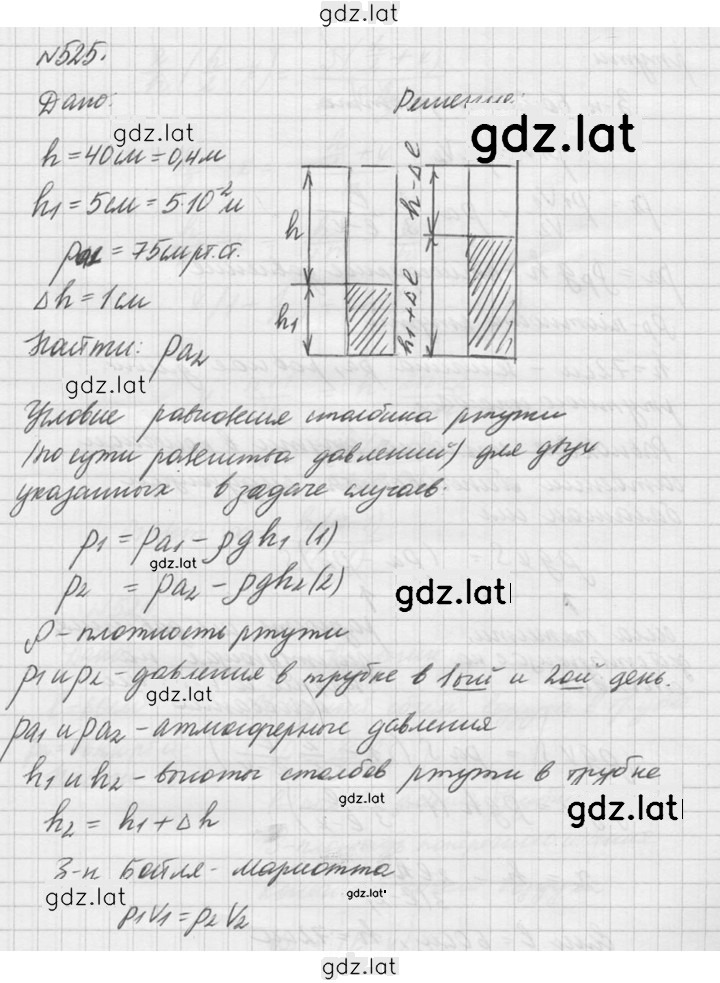 gdz.lat
№525.
Дано:
Решение:
gdz.lat
gdz.lat
h = 40см = 0,4м
h1 = 5см = 5·10⁻²м
pa1 = 75см рт.ст.
Δh = 1см
h
h1
h-Δl
h1+Δl
Найти: pa2
gdz.lat
Условие равновесия столбика ртути
(по сути равенства давлений) для двух
указанных в задаче случаев.
p1 = pa1 - ρgh1 (1)
gdz.lat
p2 = pa2 - ρgh2 (2)
gdz.lat
ρ - плотность ртути
p1 и p2 - давления в трубке в 1ый и 2ой день.
gdz.lat
pa1 и pa2 - атмосферные давления
h1 и h2 - высоты столбов ртути в трубке
gdz.lat
gdz.lat
h2 = h1 + Δh
З-н Бойля-Мариотта
gdz.lat
gdz.lat
p1V1 = p2V2
gdz.lat